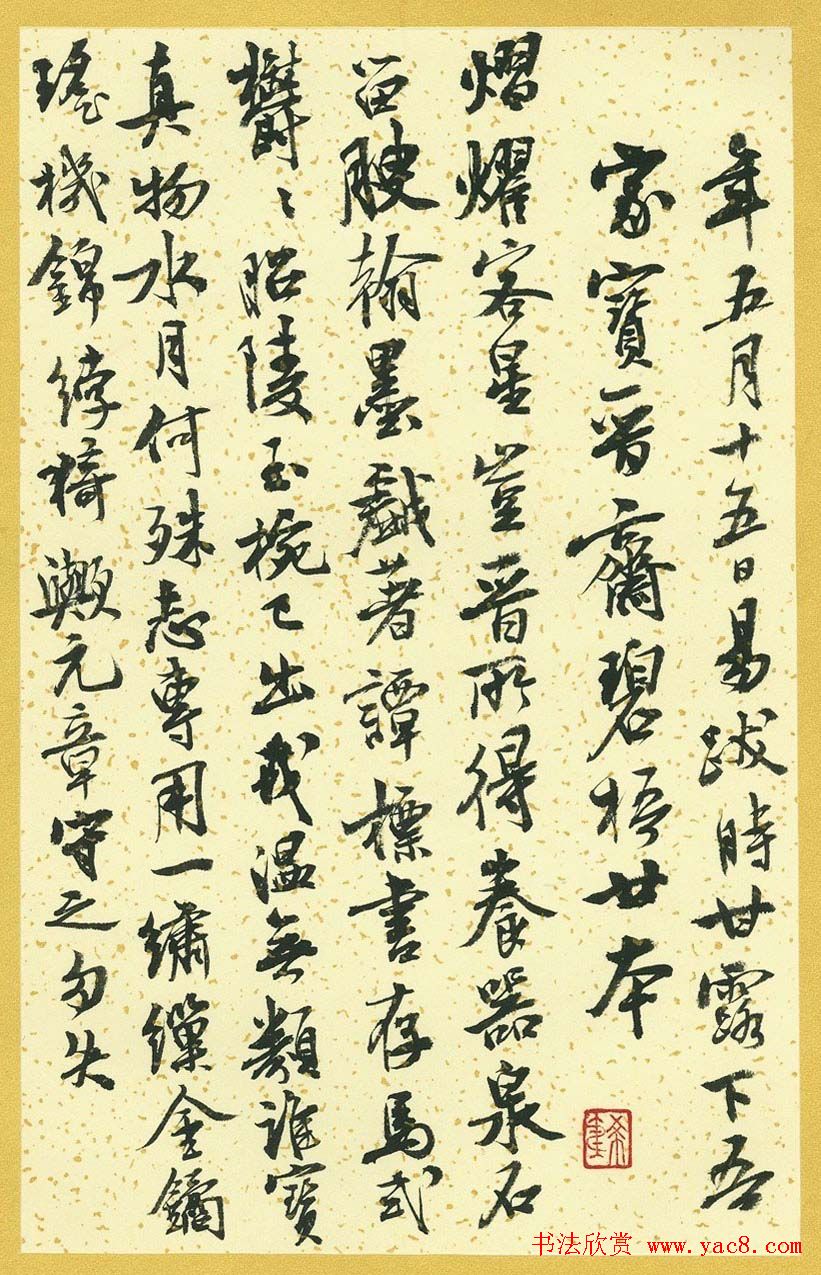 年五月十五日易跋時甘露下吾
家寶晉齋碧梧廿本
熠燿客星豈晉所得養器泉石
留腴翰墨戲著譚標書存馬式
鬱〻昭陵玉椀已出戎温無類誰寶
真物水月何殊志專用一繡繅金鐍
瑤機錦綷猗歟元章守之勿失
书法欣赏 www.yac8.com